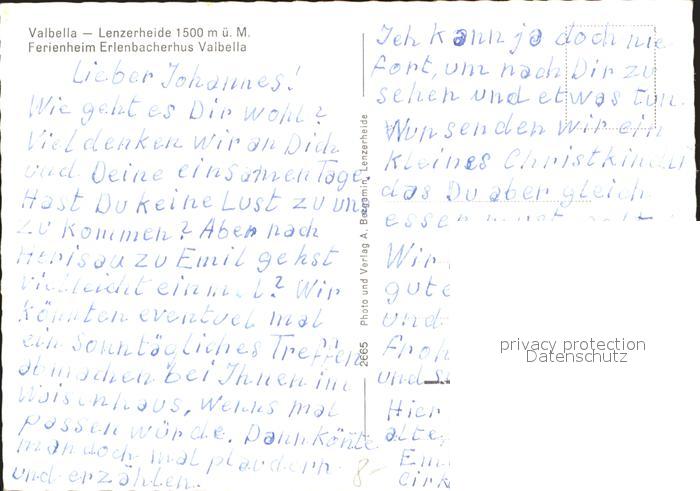 Valbella — Lenzerheide 1500 m ü. M.
Ferienheim Erlenbacherhus Valbella
Lieber Johannes!
Wie geht es Dir wohl?
Viel denken wir an Dich
und Deine einsamen Tage
Hast Du keine Lust zu uns
zu kommen? Aber nach
Herisau zu Emil gehst
vielleicht einmal? Wir
könnten eventuel mal
ein Sonntägliches Treffen
abmachen bei Ihnen im
Waisenhaus, wenns mal
passen würde. Dann könnte
man doch mal plaudern
und erzählen.
2665 Photo und Verlag A. Lenzerheide
8-
Ich kann ja doch nie
fort, um nach Dir zu
sehen und etwas tun.
Nun senden wir ein
kleines Christkindli
das Du aber gleich
essen
Wir
gute
und
Froh
und
Hier
alte
Em
privacy protection
Datenschutz